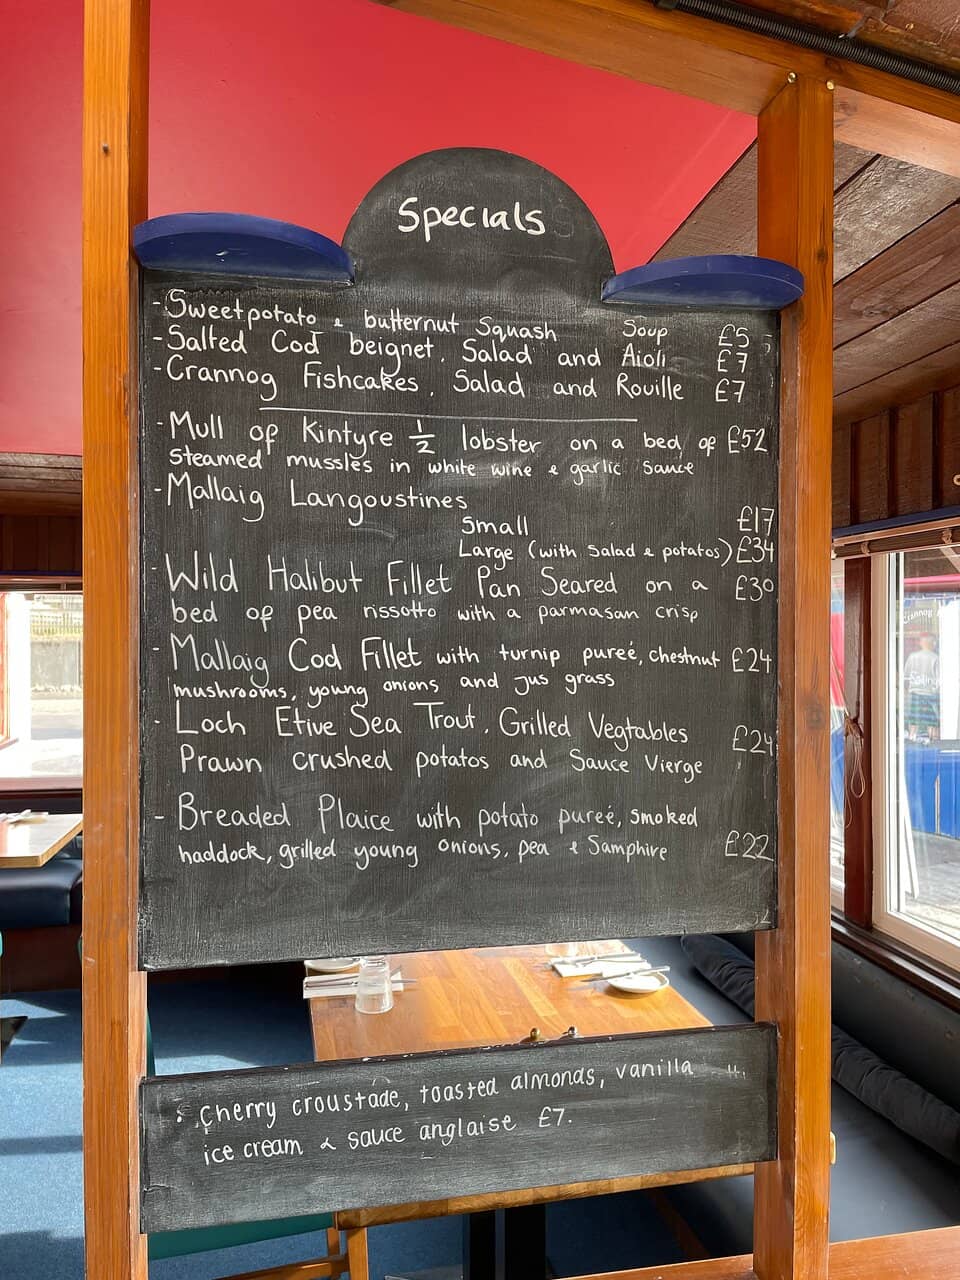 Specials
- Sweetpotato & butternut Squash Soup £5
- Salted Cod beignet, Salad and Aioli £7
- Crannog Fishcakes, Salad and Rouille £7
- Mull of Kintyre ½ lobster on a bed of £52
steamed mussles in white wine & garlic sauce
- Mallaig Langoustines
Small £17
Large (with salad & potatos) £34
- Wild Halibut Fillet Pan Seared on a £30
bed of pea rissotto with a parmasan crisp
- Mallaig Cod Fillet with turnip pureé, chestnut £24
mushrooms, young onions and jus grass
- Loch Etive Sea Trout, Grilled Vegtables
Prawn crushed potatos and Sauce Vierge £24
- Breaded Plaice with potato pureé, smoked
haddock, grilled young onions, pea & Samphire £22
Cherry croustade, toasted almonds, vanilla
ice cream & sauce anglaise £7.